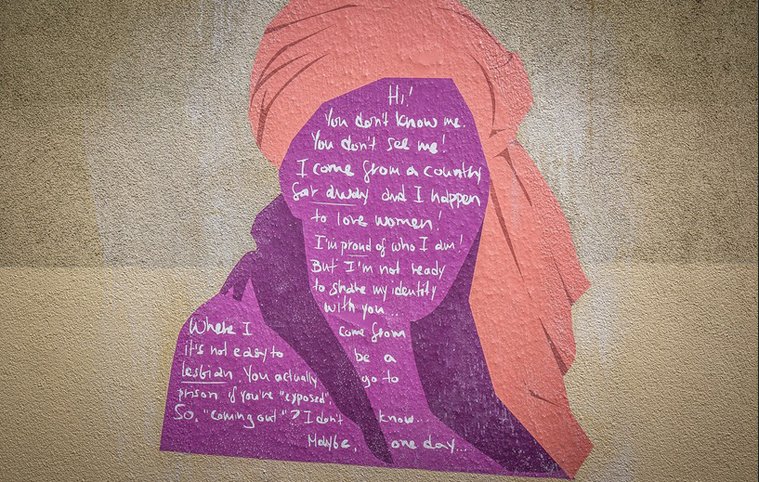 Hi!
You don't know me.
You don't see me!
I come from a country
far away and I happen
to love women!
I'm proud of who I am!
But I'm not ready
to share my identity
with you...
Where I come from
it's not easy to be a
lesbian. You actually go to
prison if you're "exposed".
So, "coming out"? I don't know...
Maybe, one day...